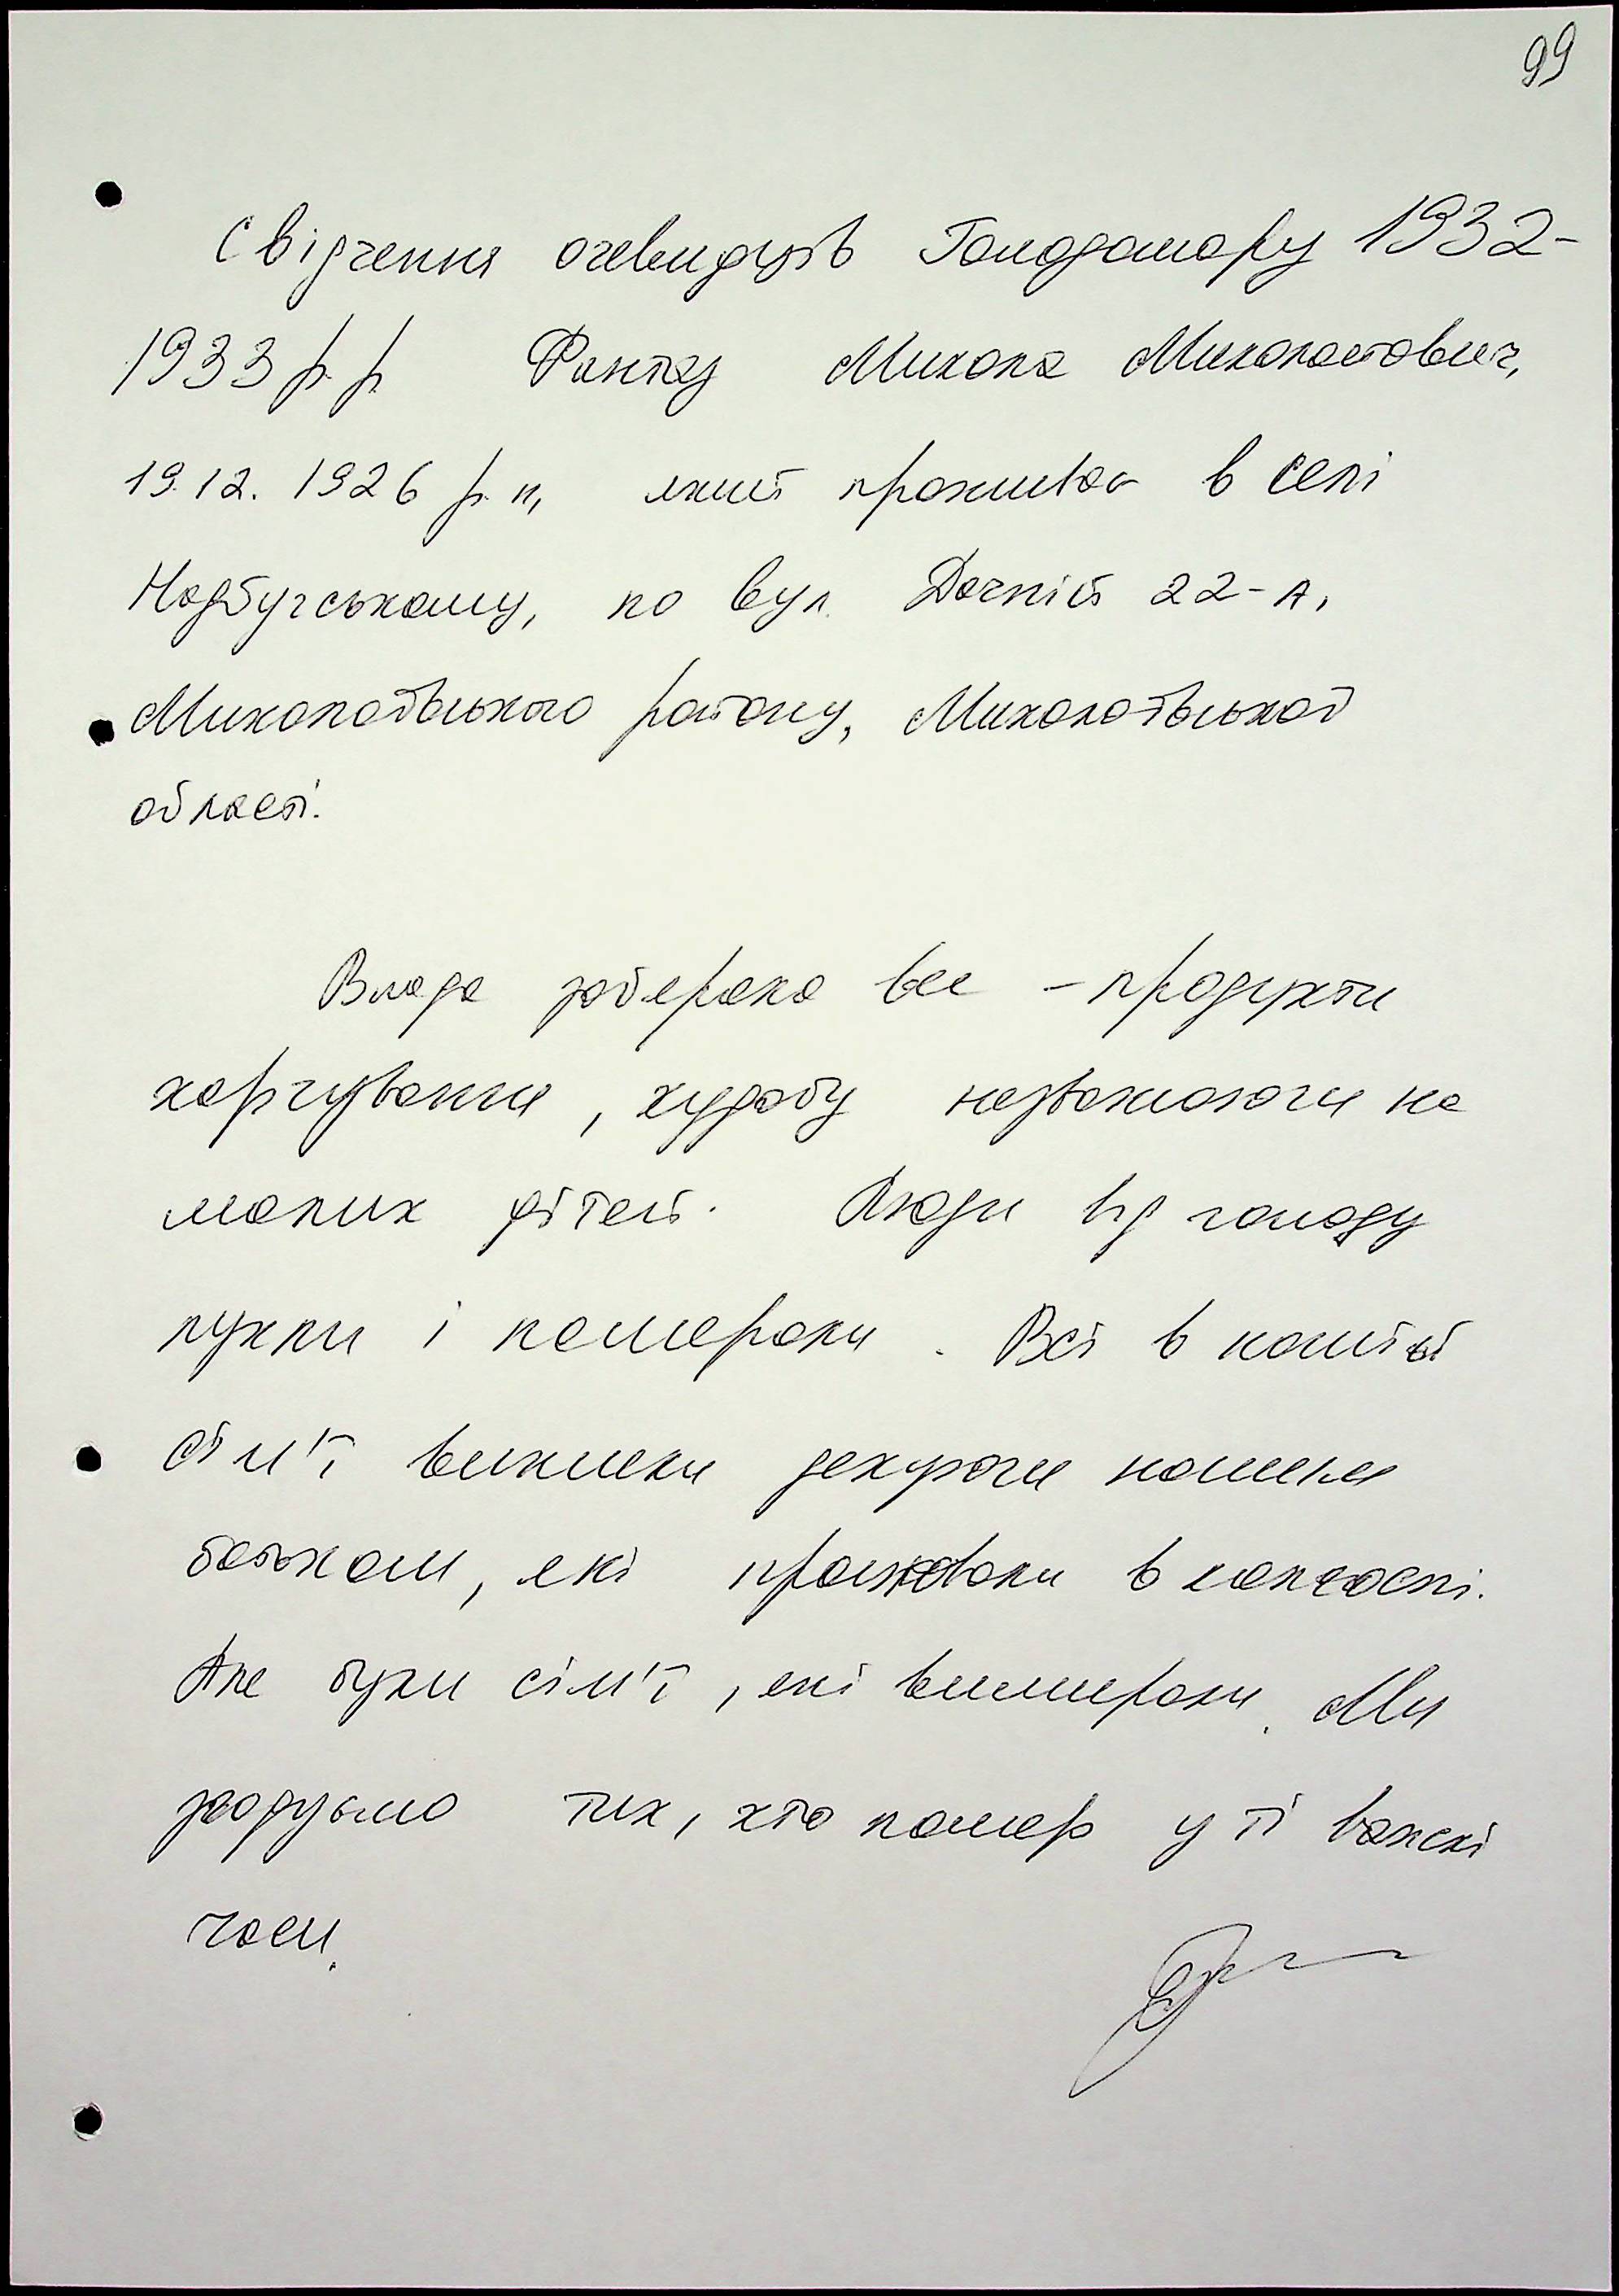 99
Свідчення очевидців Голодомору 1932-
1933 р.р Фантау Микола Миколайович,
19.12.1926 р.н, який проживає в селі
Надбузькому, по вул. Дачній 22-А,
Миколаївського району, Миколаївської
області.
Влада забирала все - продукти
харчування, худобу незважаючи на
малих дітей. Люди від голоду
пухли і помирали. Всі в нашій
сім'ї вижили дякуючи нашим
батькам, які працювали в колгоспі.
Але були сім'ї, які вимирали. Ми
згадуємо тих, хто помер у ті важкі
часи.